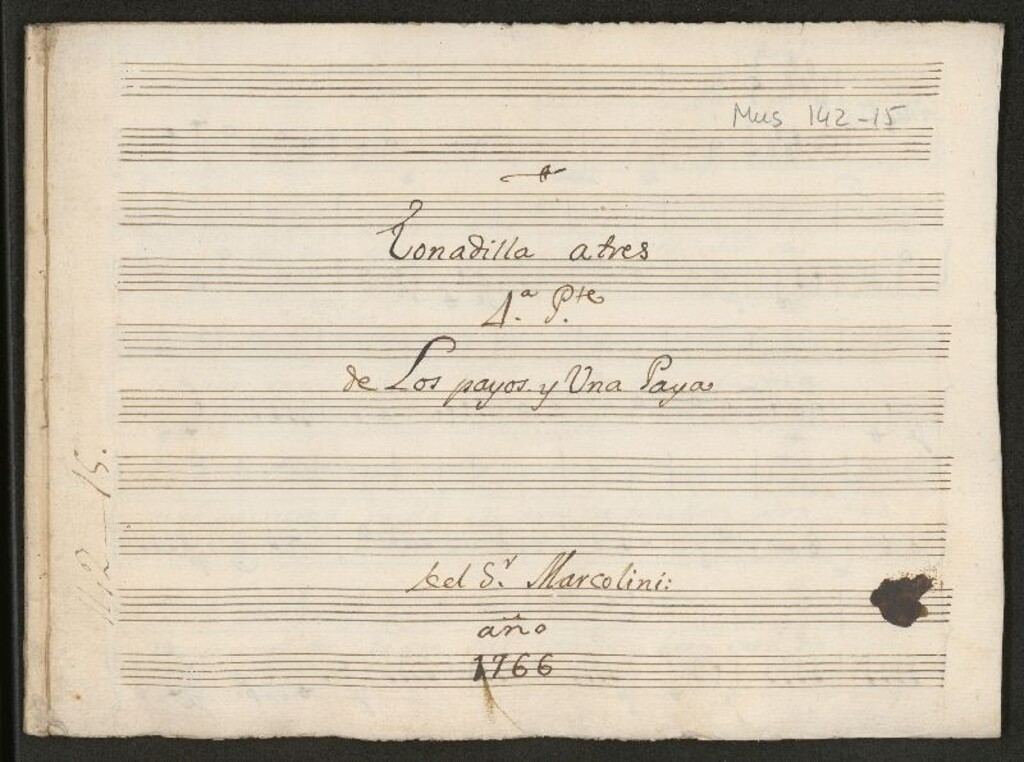 Mus 142-15
Tonadilla atres
4.ª P.te
de Los payos y Una Paya
del S.r Marcolini:
año
1766
142-15.